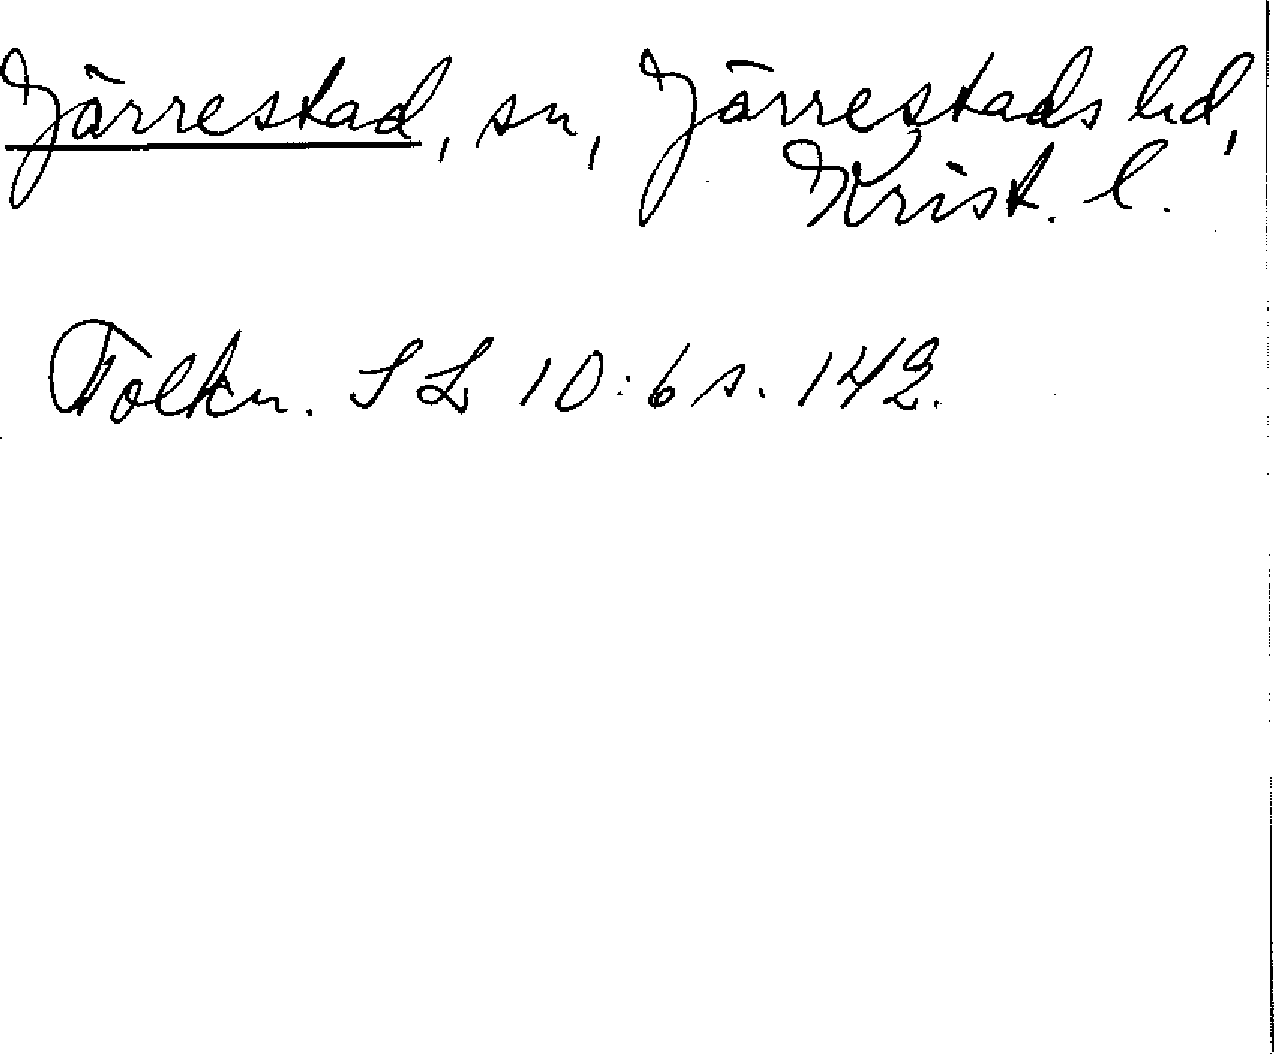 Järrestad, sn, Järrestads hd,
Krist. l.
Tolkn. SL 10:6 s. 142.